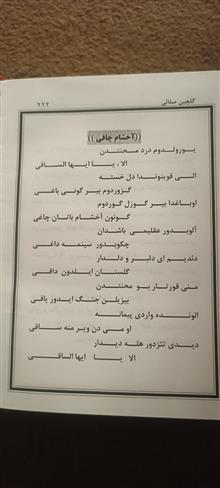 گلچین صفائی
۲۲۲
((آخشام چاغی))
یـورولـدوم درد مـحـنـتـدن
الا ، یـــا ایـهـا الـسـاقـی
الـی قوینونـدا دل خسـتـه
گـزوردوم بیـر گـونـی باغـی
اوباغدا بیـر گـوزل گـوردوم
گـونون آخشام باتان چاغی
آلـوبـدور عقلیمـی باشدان
چکوبـدور سینمـه داغـی
دئدیـم ای دلبـر و دلـدار
گلستان ایـلـدون داقـی
مـنی قورتـار بـو محنتـدن
بیزیلـن جنـگ ایـدور یاقی
الونـده واردی پیمانـه
او مـی دن ویـر منه سـاقـی
دیـدی تئزدور هلـه دیـدار
الا یـــا ایـهـا الساقـی